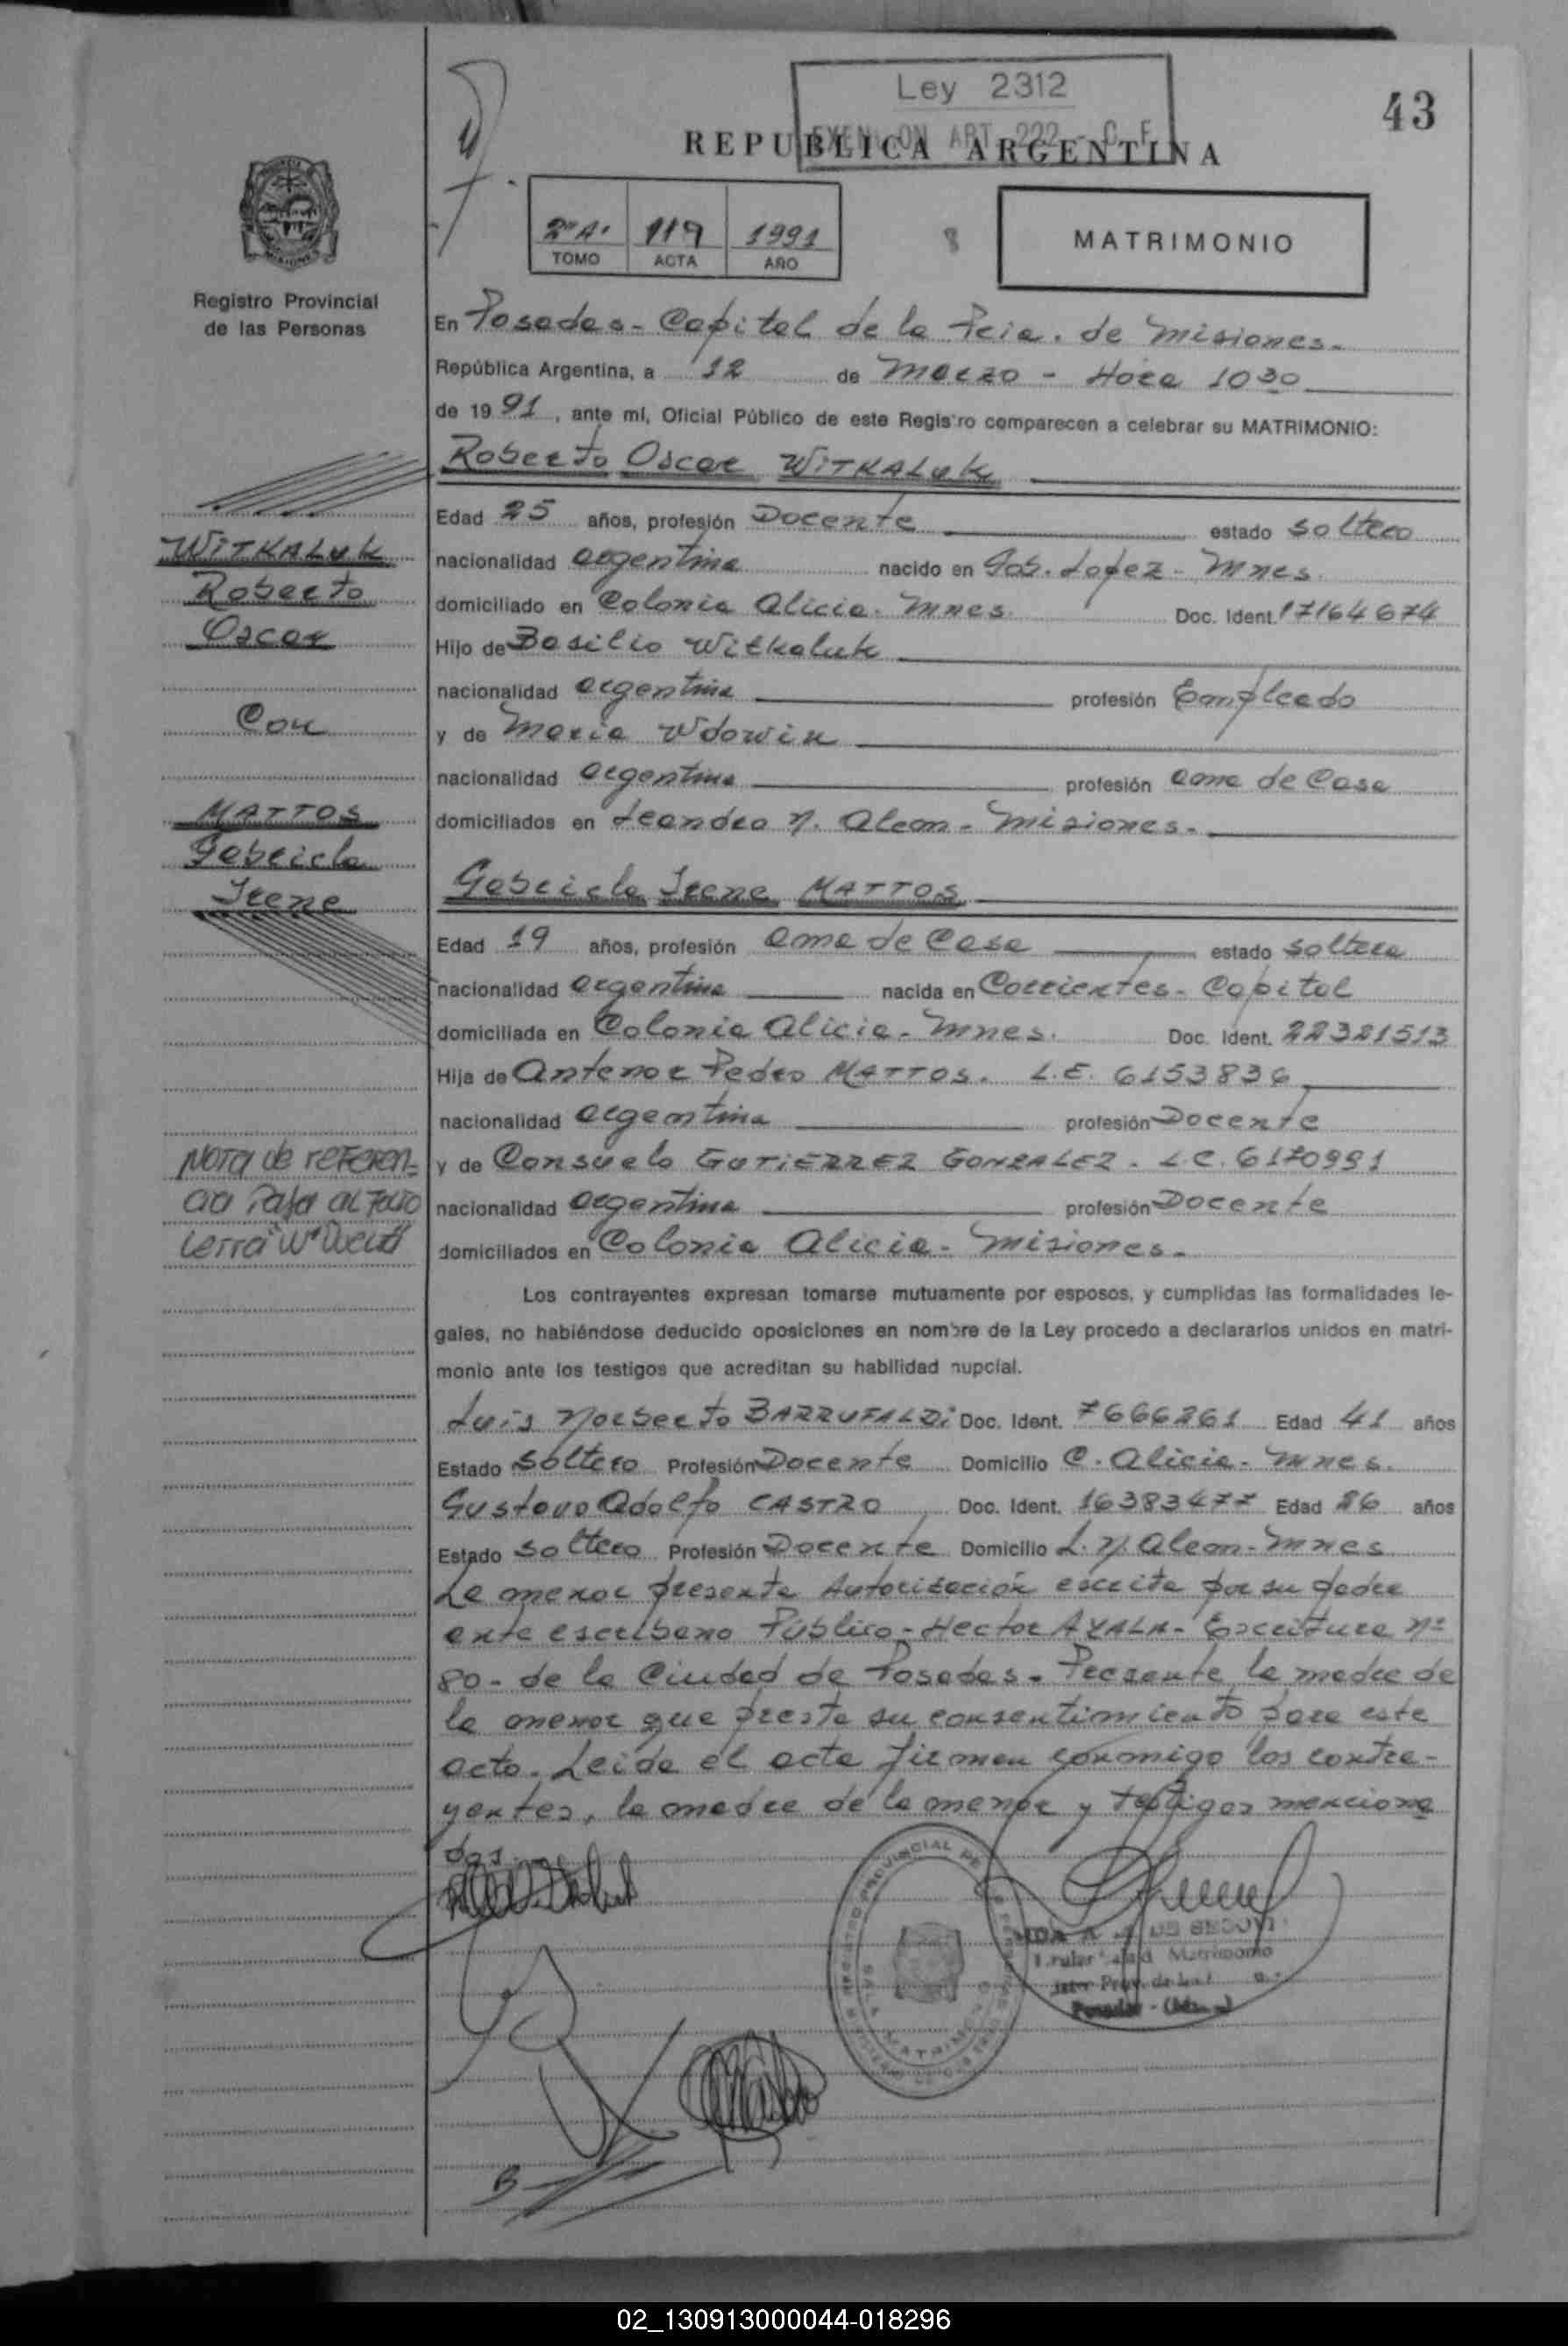 Ley 2312
43
REPUBLICA ARGENTINA
ART. 222 - C. F.
2º A.
119
1991
TOMO
ACTA
AÑO
8
MATRIMONIO
Registro Provincial
de las Personas
En Posadas - Capital de la Pcia. de Misiones.
República Argentina, a 12 de Marzo - Hora 1030
de 1991, ante mí, Oficial Público de este Registro comparecen a celebrar su MATRIMONIO:
Roberto Oscar WITKALUK
Edad 25 años, profesión Docente estado soltero
nacionalidad argentina nacido en Gob. Lopez - Mnes.
domiciliado en Colonia Alicia - Mnes. Doc. Ident. 17164674
Hijo de Basilio Witkaluk
nacionalidad argentina profesión Empleado
y de Maria Wdowin
nacionalidad argentina profesión ama de Casa
domiciliados en Leandro N. Alem - Misiones.
Gabriela Irene MATTOS
Edad 19 años, profesión ama de Casa estado soltera
nacionalidad argentina nacida en Corrientes - Capital
domiciliada en Colonia Alicia - Mnes. Doc. Ident. 22321513
Hija de Antenor Pedro MATTOS. L.E. 6153836
nacionalidad argentina profesión Docente
y de Consuelo GUTIERREZ GONZALEZ. L.C. 6170991
nacionalidad argentina profesión Docente
domiciliados en Colonia Alicia - Misiones.
WITKALUK
Roberto
Oscar
Con
MATTOS
Gabriela
Irene
Nota de referen-
cia Pasa al Folio
Los contrayentes expresan tomarse mutuamente por esposos, y cumplidas las formalidades le-
gales, no habiéndose deducido oposiciones en nombre de la Ley procedo a declararlos unidos en matri-
monio ante los testigos que acreditan su habilidad nupcial.
Luis Norberto BARRUFALDI Doc. Ident. 7666261 Edad 41 años
Estado Soltero Profesión Docente Domicilio C. Alicia - Mnes.
Gustavo Adolfo CASTRO Doc. Ident. 16383477 Edad 26 años
Estado soltero Profesión Docente Domicilio L. N. Alem - Mnes
La menor presenta Autorización escrita por su padre
ante escribano Público - Hector AYALA - Escritura Nº
80 - de la Ciudad de Posadas. Presente la madre de
la menor que presta su consentimiento para este
acto. Leida el acta firman conmigo los contra-
yentes, la madre de la menor y testigos menciona
dos.
REGISTRO PROVINCIAL DE LAS PERSONAS
SALA
MATRIMONIO
DE SEGOVI
Matrimonio
Posadas - (Mnes.)
02_130913000044-018296